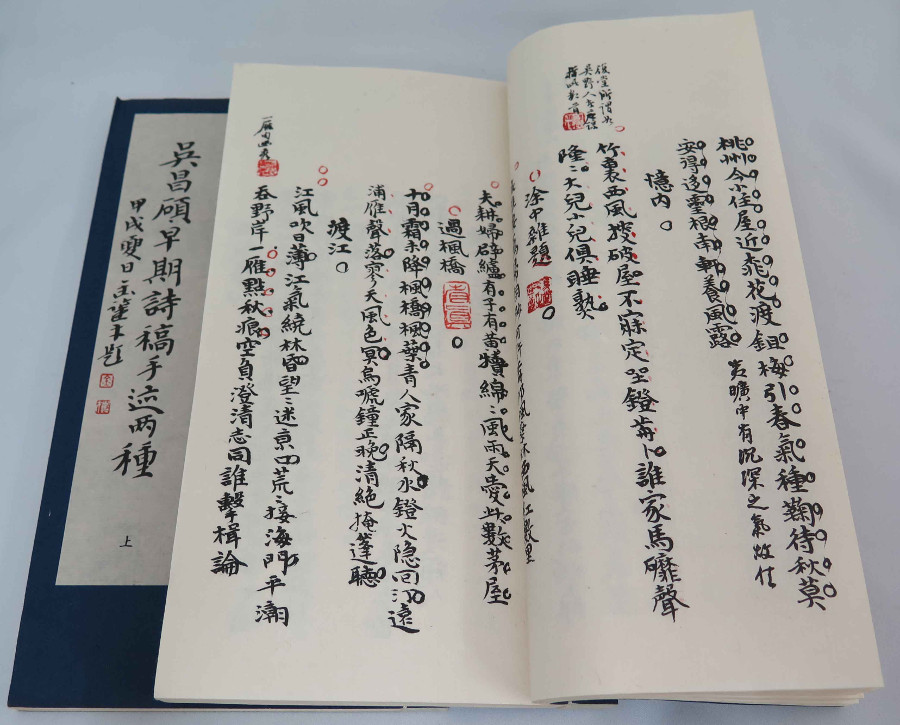 桃州今小住屋近飛花渡鉏梅引春氣種鞠待秋莫
安得迻靈根南軒養風露
曠中有沉深之氣
憶内
竹裏西風搜破屋不寐定坐鐙前卜誰家馬聲
隆〻大兒小兒俱睡熟
復堂所謂
吳野人
涂中雜題
夫耕婦辟纑有子有黃犢綿〻風雨天愛此數茅屋
過楓橋
十月霜未降楓橋楓葉青人家隔秋水鐙火隐回汀遠
浦雁聲落寥天風色冥烏嗁鐘正晚清絕掩篷聽
渡江
江風吹日薄江氣繞林昏望〻迷京口荒〻接海門平潮
吞野岸一雁點秋痕空負澄清志同誰擊楫論
一雁句
吳昌碩早期詩稿手迹两種
甲戌夏日
題
上